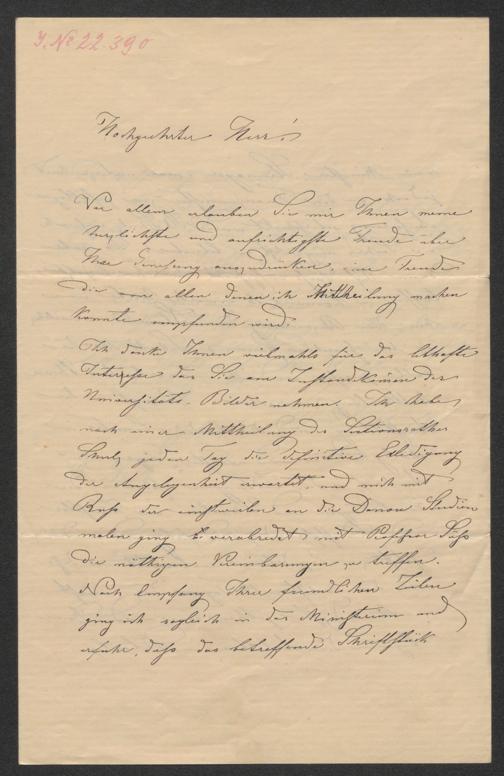 J. No 22.390
Hochgeehrter Herr!
Vor allem erlauben Sie mir Ihnen meine
herzlichste und aufrichtigste Freude über
Ihre Genesung auszudrücken, eine Freude
die von allen denen ich Mittheilung machen
konnte empfunden wird.
Ich danke Ihnen vielmals für das lebhafte
Interesse das Sie am Zustandekomen der
Universitäts-Bilder nehmen. Ich habe,
nach einer Mittheilung des Sectionsrathes
jeden Tag die definitive Erledigung
der Angelegenheit erwartet, und mich mit
Ruß der einstweilen an die Donau Studien
malen ging verabredet mit Professor Süß
die nöthigen Vereinbarungen zu treffen.
Nach Empfang Ihrer freundlichen Zeilen
ging ich sogleich in das Ministerium und
erfuhr, daß das betreffende Schriftstück